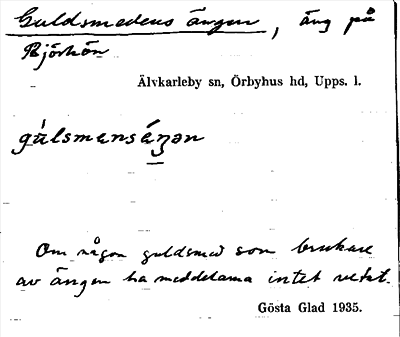 Guldsmedens ängen, äng på
Björkön
Älvkarleby sn, Örbyhus hd, Upps. l.
gúlsmenséŋən
Om någon guldsmed som brukare
av ängen ha meddelarna intet vetat.
Gösta Glad 1935.